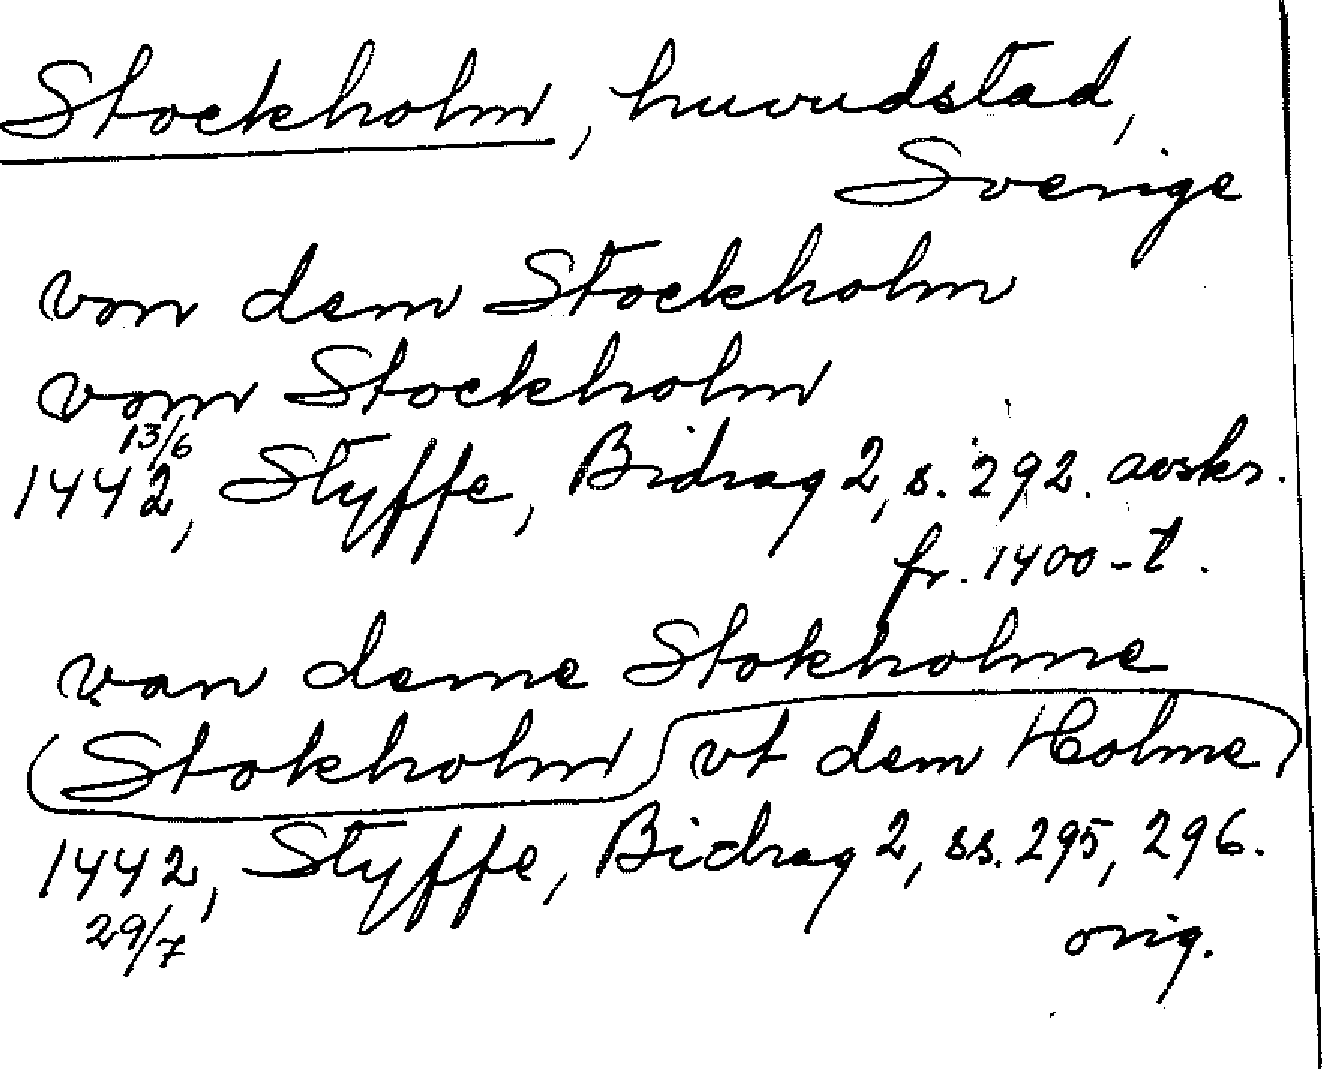 Stockholm, huvudstad,
Sverige
von dem Stockholm
vom Stockholm
13/6
1442, Styffe, Bidrag 2, s. 292. avskr.
fr. 1400-t.
van deme Stokholme
(Stokholm) vt dem Holme)
1442, Styffe, Bidrag 2, ss. 295, 296.
29/7
orig.